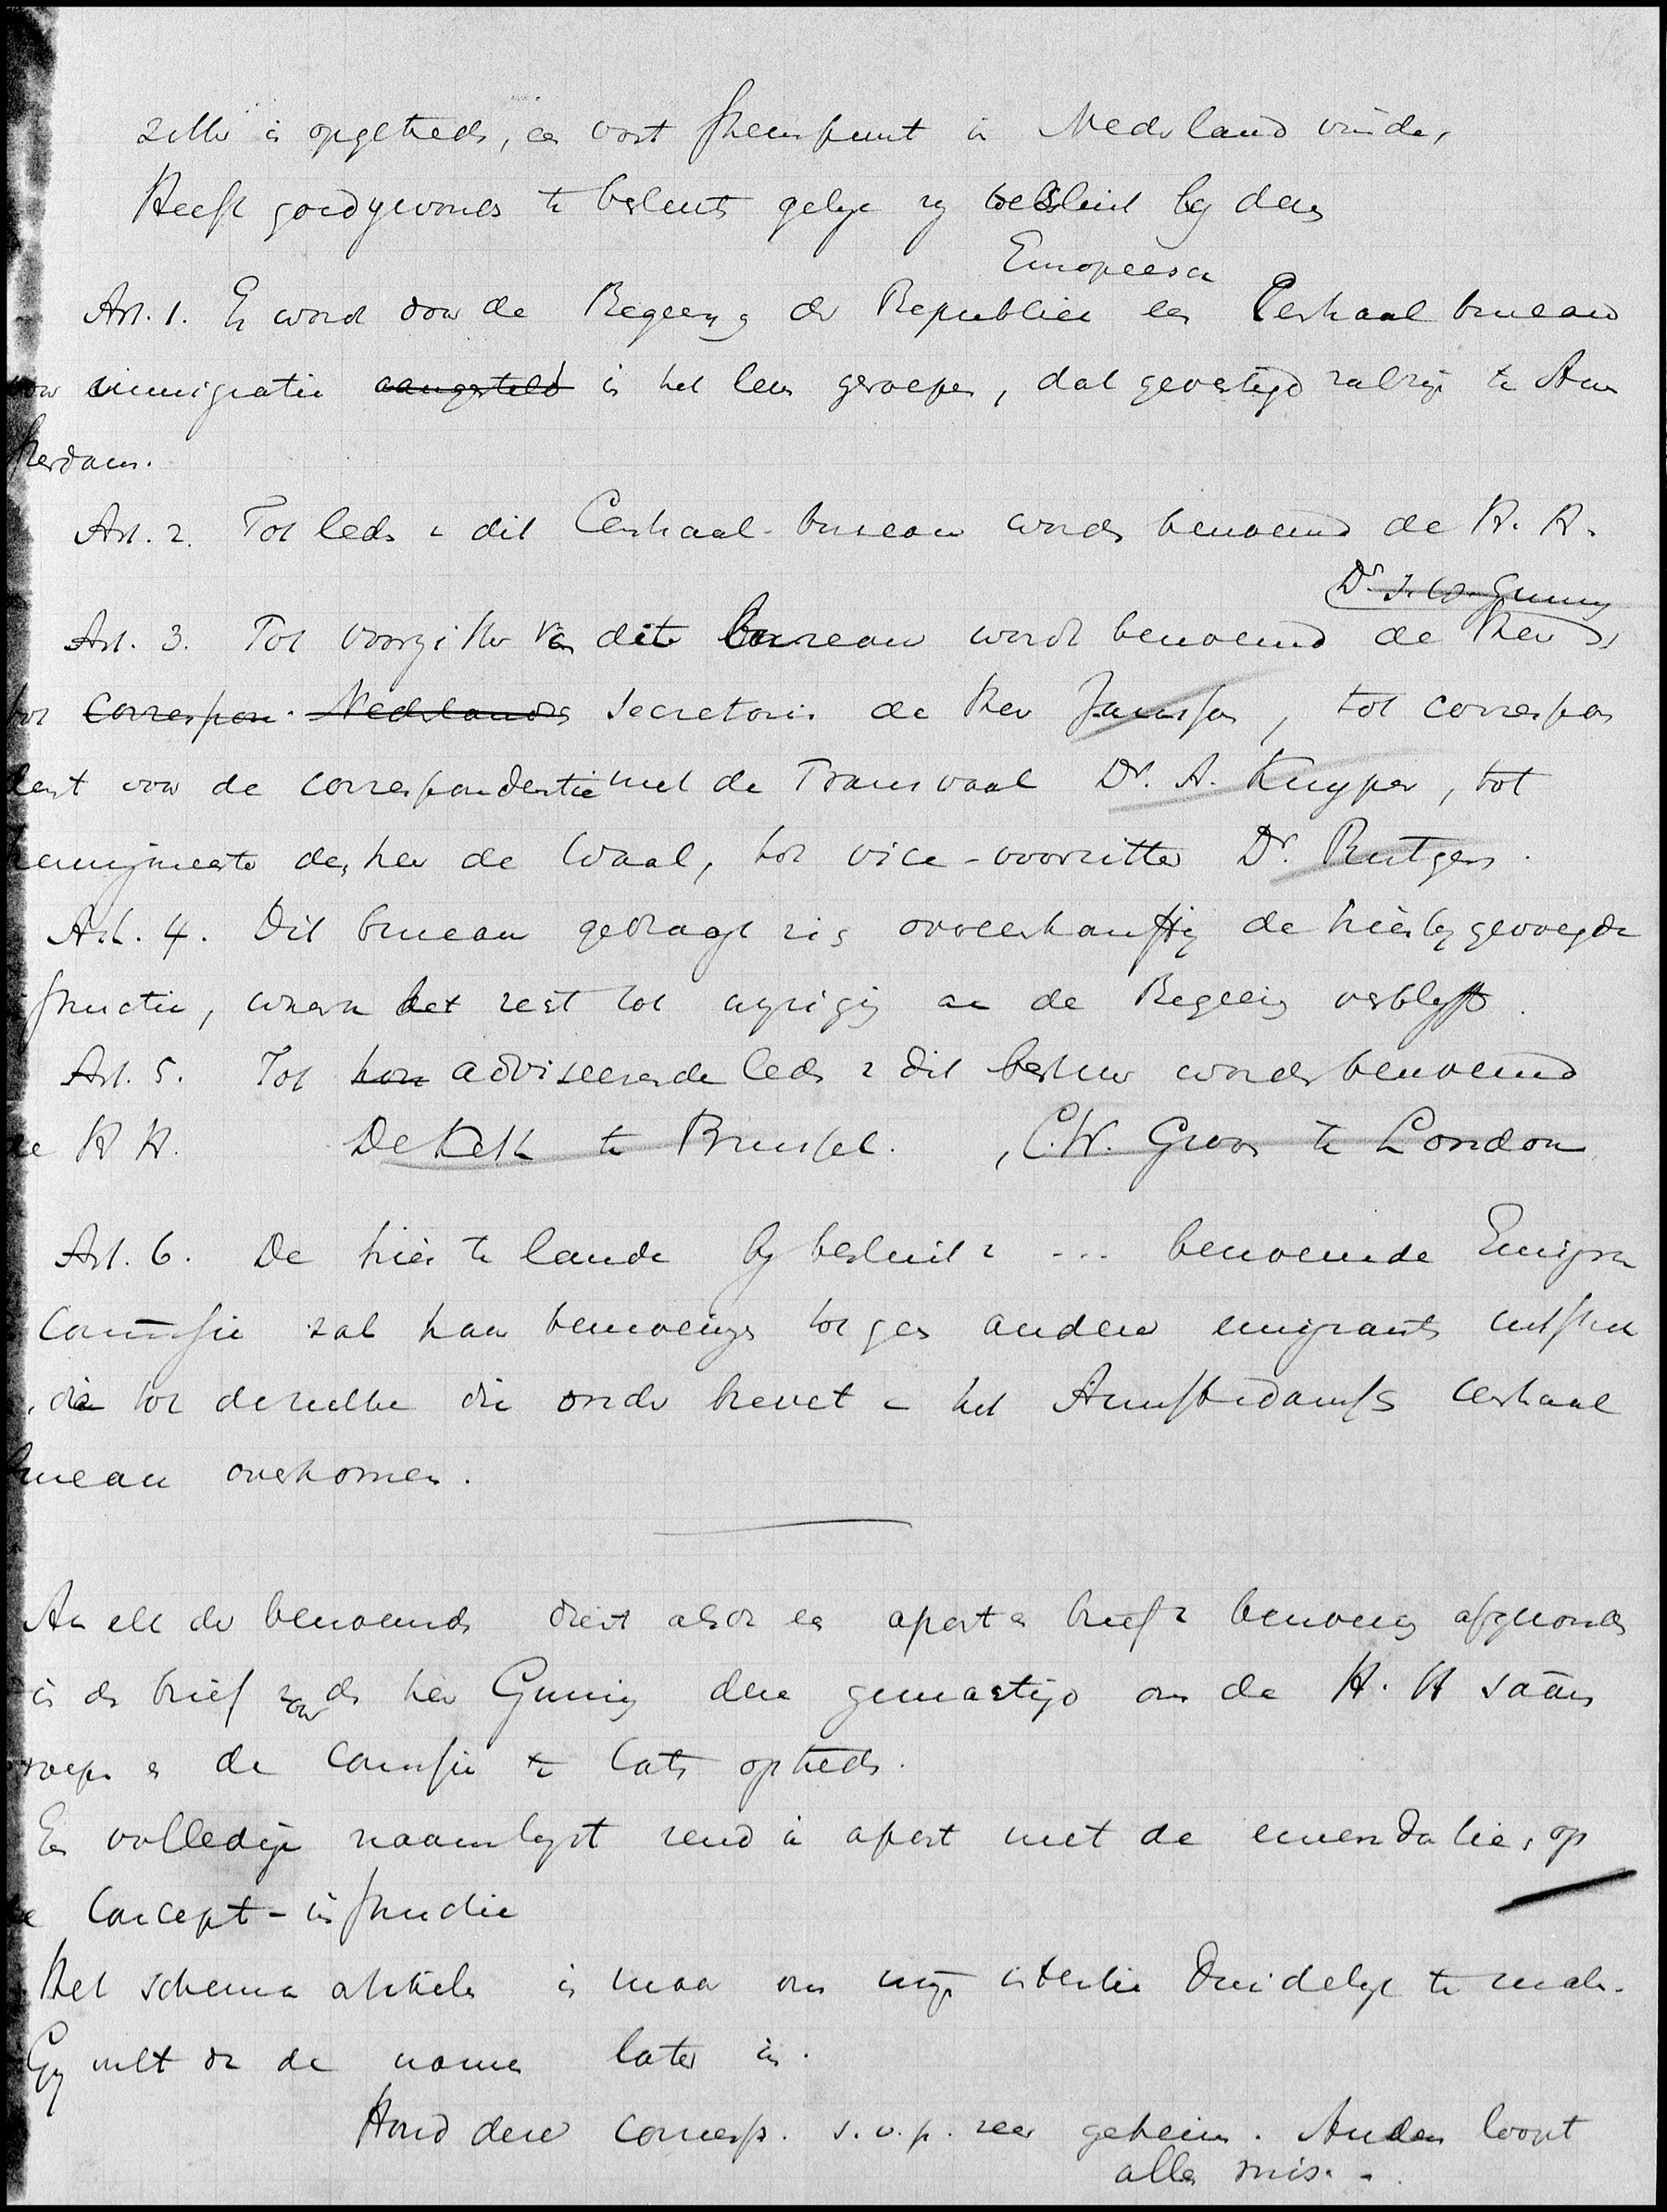 zelve is opgetreden, een vast steunpunt in Nederland vinde,
Heeft goedgevonden te besluiten gelijk zij besluit bij dezen
Europeesch
Art. 1. Er word door de Regeering der Republiek een Centraal bureau
voor immigratie aangesteld in het leven geroepen, dat gevestigd zal zijn te Am
sterdam.
Art. 2. Tot leden v dit Centraal-bureau worden benoemd de H. H.
Dr. J. W. Gunning
Art. 3. Tot voorzitter van dit bureau wordt benoemd de Heer
tot Correspon. Nederlands secretaris de Heer Janssen, tot correspon
dent voor de correspondentie met de Transvaal Dr. A. Kuyper, tot
penningmeester den heer de Waal, tot vice-voorzitter Dr. Rutgers.
Art. 4. Dit bureau gedraagt zig overeenkomstig de hierbijgevoegde
instructie, waarin het regt tot wijziging aan de Regeering verblijft.
Art. 5. Tot hon adviseerende leden v dit bestuur worden benoemd
de H H. De Kelk te Brussel. , C. W. Groos te London
Art. 6. De hier te lande bij besluit v ... benoemde Emigra
Commissie zal haar bemoeiing tot geen andere emigranten uitstrek
, dan tot dezulke die onder brevet v het Amsterdamsch Centraal
bureau overkomen.
An elk der benoemden dient alsdan een aparte brief v benoeming afgezonden
in de brief voor den heer Gunning deze gemachtigd om de H. H saam
roepen en de Commissie te laten optreden.
Een volledige naamlijst zend ik apart met de emendatie, op
de Concept-instructie
Het schema artikelen is maar om mijn intentie duidelijk te maken.
Gij vult dan de namen later in.
Houd deze corresp. s.v.p. zeer geheim. Anders loopt
alles mis. -